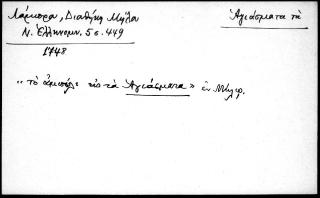 Λάμπρου, Διαθήκη Μήλου
Ν. Ἑλληνομν. 5 σ. 449
1748
Ἁγιάσματα τὰ
„ τὸ ἀμπέλι εἰς τὰ Ἁγιάσματα » ἐν Μήλῳ.